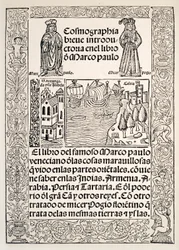 Cosmographia
breue introdu
ctoria en el libro
d Marco paulo
El libro del famoso Marco paulo
veneciano dlas cosas marauillosas
q vido en las partes orientales. cōuie
ne saber en las Indias, Armenia, A
rabia, Persia ⁊ Tartaria. E dl pode
rio dl grā Cā y otros reyes. Cō otro
tratado de micer Pogio florentino q
trata de las mesmas tierras ⁊ yslas.